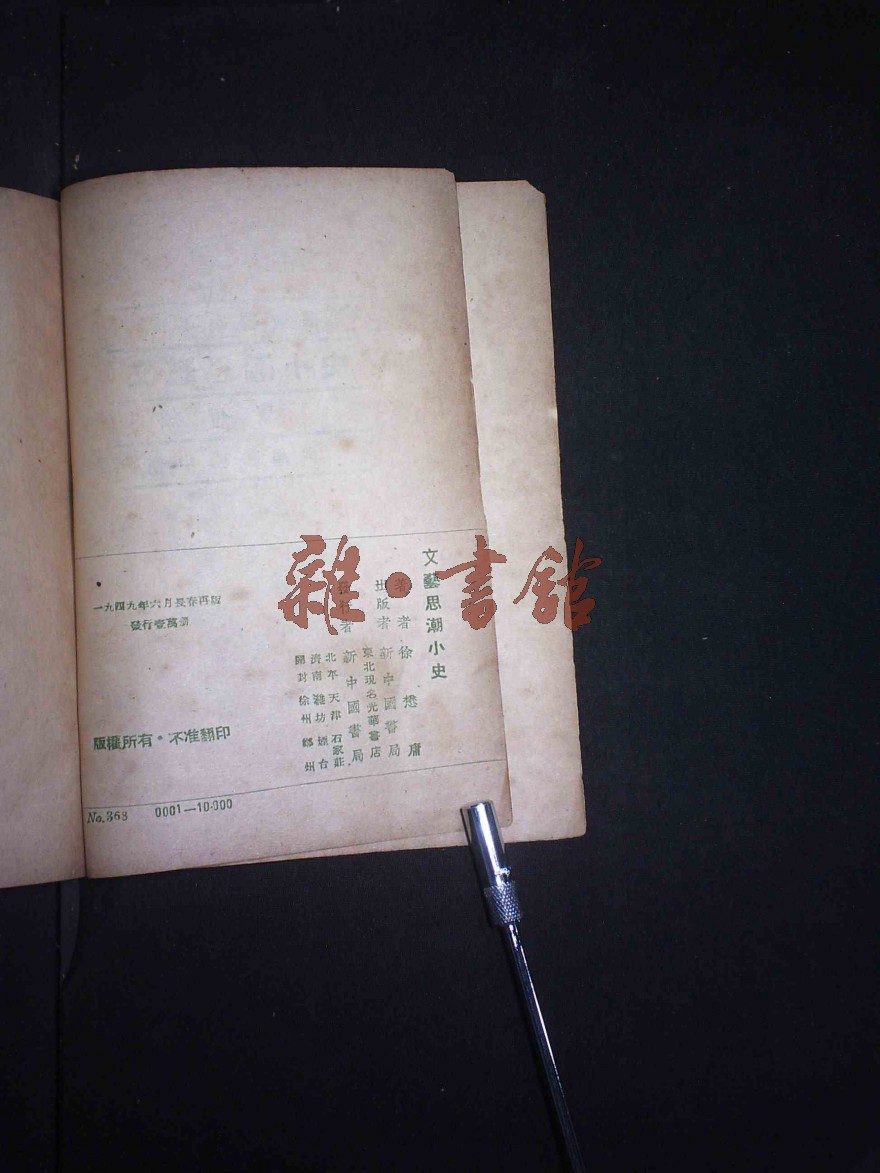 文藝思潮小史
著者 徐懋庸
出版者 新中國書局
東北現名光華書店
發行者 新中國書局
北平 天津 石家莊
濟南 濰坊 煙台
開封 徐州 鄭州
一九四九年六月長春再版
發行壹萬冊
版權所有·不准翻印
No.368 0001—10.000
雜·書館